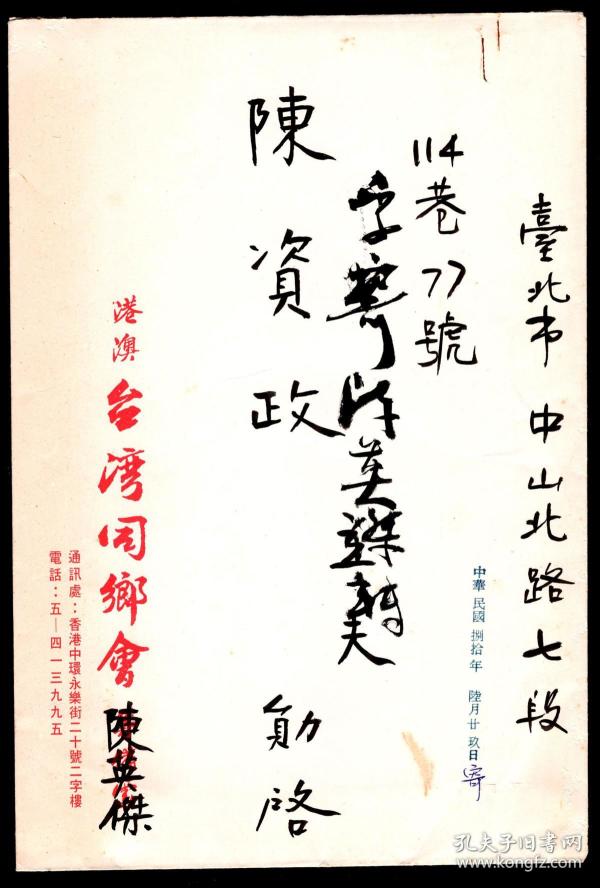 臺北市中山北路七段
中華民國捌拾年 陸月廿玖日寄
114巷77號
陳資政 勛啓
港澳台湾同鄉會 陳英傑
通訊處：香港中環永樂街二十號二字樓
電話：五—四一三九九五
孔夫子旧书网
www.kongfz.com